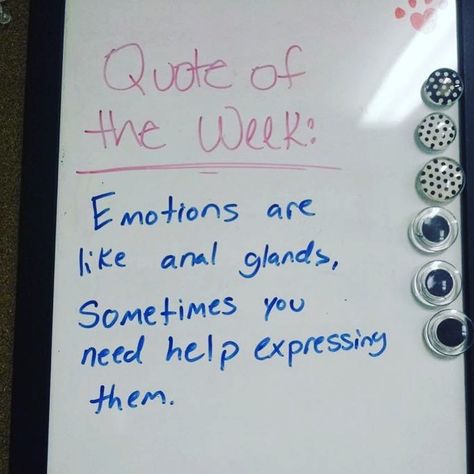 Quote of
the Week:
Emotions are
like anal glands,
Sometimes you
need help expressing
them.